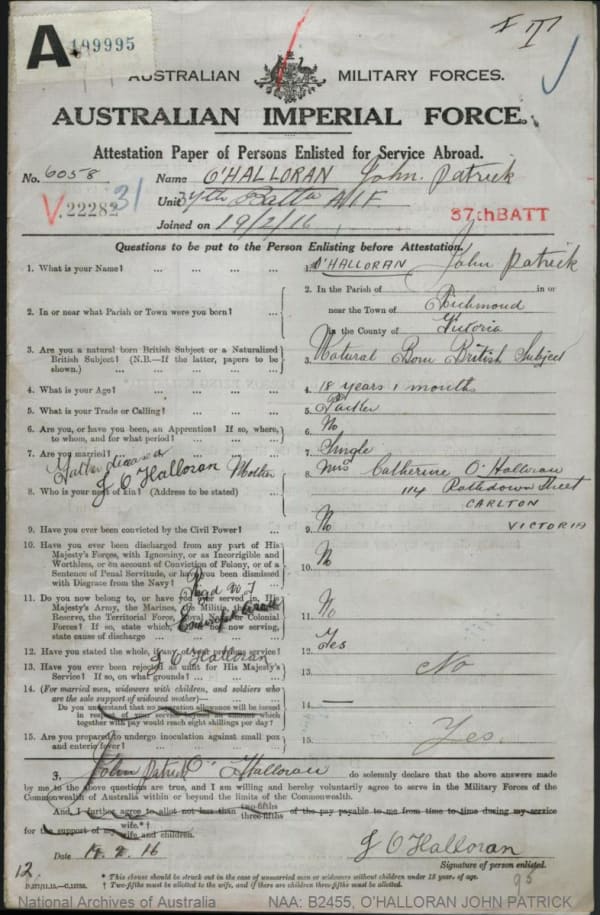 A 199995
AUSTRALIAN MILITARY FORCES.
AUSTRALIAN IMPERIAL FORCE.
Attestation Paper of Persons Enlisted for Service Abroad.
No. 6058 Name O'HALLORAN John Patrick
V.22282 31 Unit 37th Battn AIF
Joined on 19/2/16 37thBATT
Questions to be put to the Person Enlisting before Attestation.
1. What is your Name? ... ... ... ... 1. O'HALLORAN John Patrick
2. In or near what Parish or Town were you born? ... 2. In the Parish of in or
near the Town of Richmond
in the County of Victoria
3. Are you a natural born British Subject or a Naturalized
British Subject? (N.B.—If the latter, papers to be
shown.) ... ... ... ... 3. Natural Born British Subject
4. What is your Age? ... ... ... ... 4. 18 years 1 month
5. What is your Trade or Calling? ... ... ... 5. Packer
6. Are you, or have you been, an Apprentice? If so, where,
to whom, and for what period? ... ... ... 6. No
7. Are you married? ... 7. Single
Father deceased
J O'Halloran Mother
8. Who is your next of kin? (Address to be stated) ... 8. Mrs Catherine O'Halloran
114 Rathdown Street
CARLTON
VICTORIA
9. Have you ever been convicted by the Civil Power? ... 9. No
10. Have you ever been discharged from any part of His
Majesty's Forces, with Ignominy, or as Incorrigible and
Worthless, or on account of Conviction of Felony, or of a
Sentence of Penal Servitude, or have you been dismissed
with Disgrace from the Navy? ... 10. No
11. Do you now belong to, or have you ever served in, His
Majesty's Army, the Marines, the Militia, the
Reserve, the Territorial Force, Royal Navy or Colonial
Forces? If so, state which, and if not now serving,
state cause of discharge ... 11. No
12. Have you stated the whole, if any, of your previous service? 12. Yes
J O'Halloran
13. Have you ever been rejected as unfit for His Majesty's
Service? If so, on what grounds? ... ... 13. No
14. (For married men, widowers with children, and soldiers who
are the sole support of widowed mother)—
Do you understand that no separation allowance will be issued
in respect of your service beyond an amount which
together with pay would reach eight shillings per day? 14. —
15. Are you prepared to undergo inoculation against small pox
and enteric fever? ... ... 15. Yes.
I, John Patrick O'Halloran do solemnly declare that the above answers made
by me to the above questions are true, and I am willing and hereby voluntarily agree to serve in the Military Forces of the
Commonwealth of Australia within or beyond the limits of the Commonwealth.
And I further agree to allot not less than two-fifths three-fifths of the pay payable to me from time to time during my service
for the support of my wife.*† wife and children.
Date 19.2.16 J O'Halloran
Signature of person enlisted.
12. * This clause should be struck out in the case of unmarried men or widowers without children under 18 years of age.
† Two-fifths must be allotted to the wife, and if there are children three-fifths must be allotted.
95
National Archives of Australia NAA: B2455, O'HALLORAN JOHN PATRICK